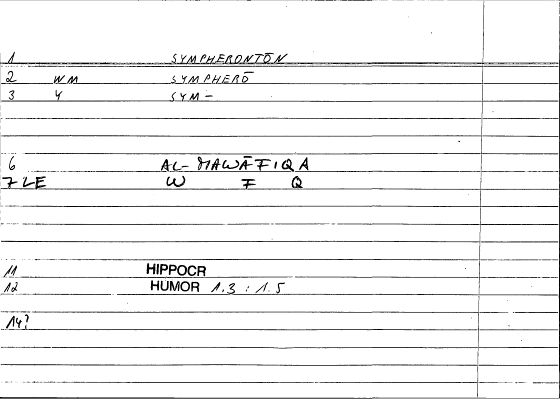 1 SYMPHERONTŌN
2 WM SYMPHERŌ
3 4 SYM-
6 AL-MAWĀFIQA
7 LE W F Q
11 HIPPOCR
12 HUMOR 1.3 : 1.5
14?